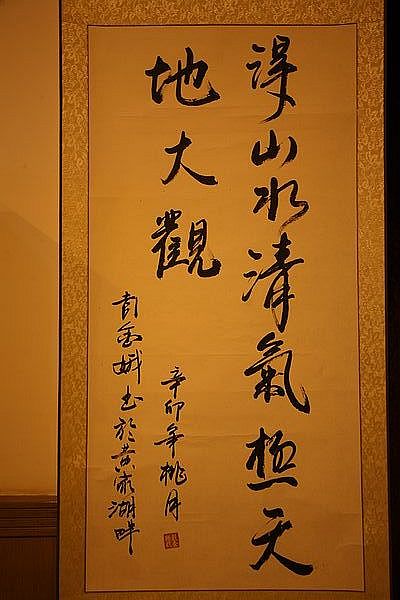 得山水清氣極天
地大觀
辛卯年桃月
金娥書於黃家湖畔